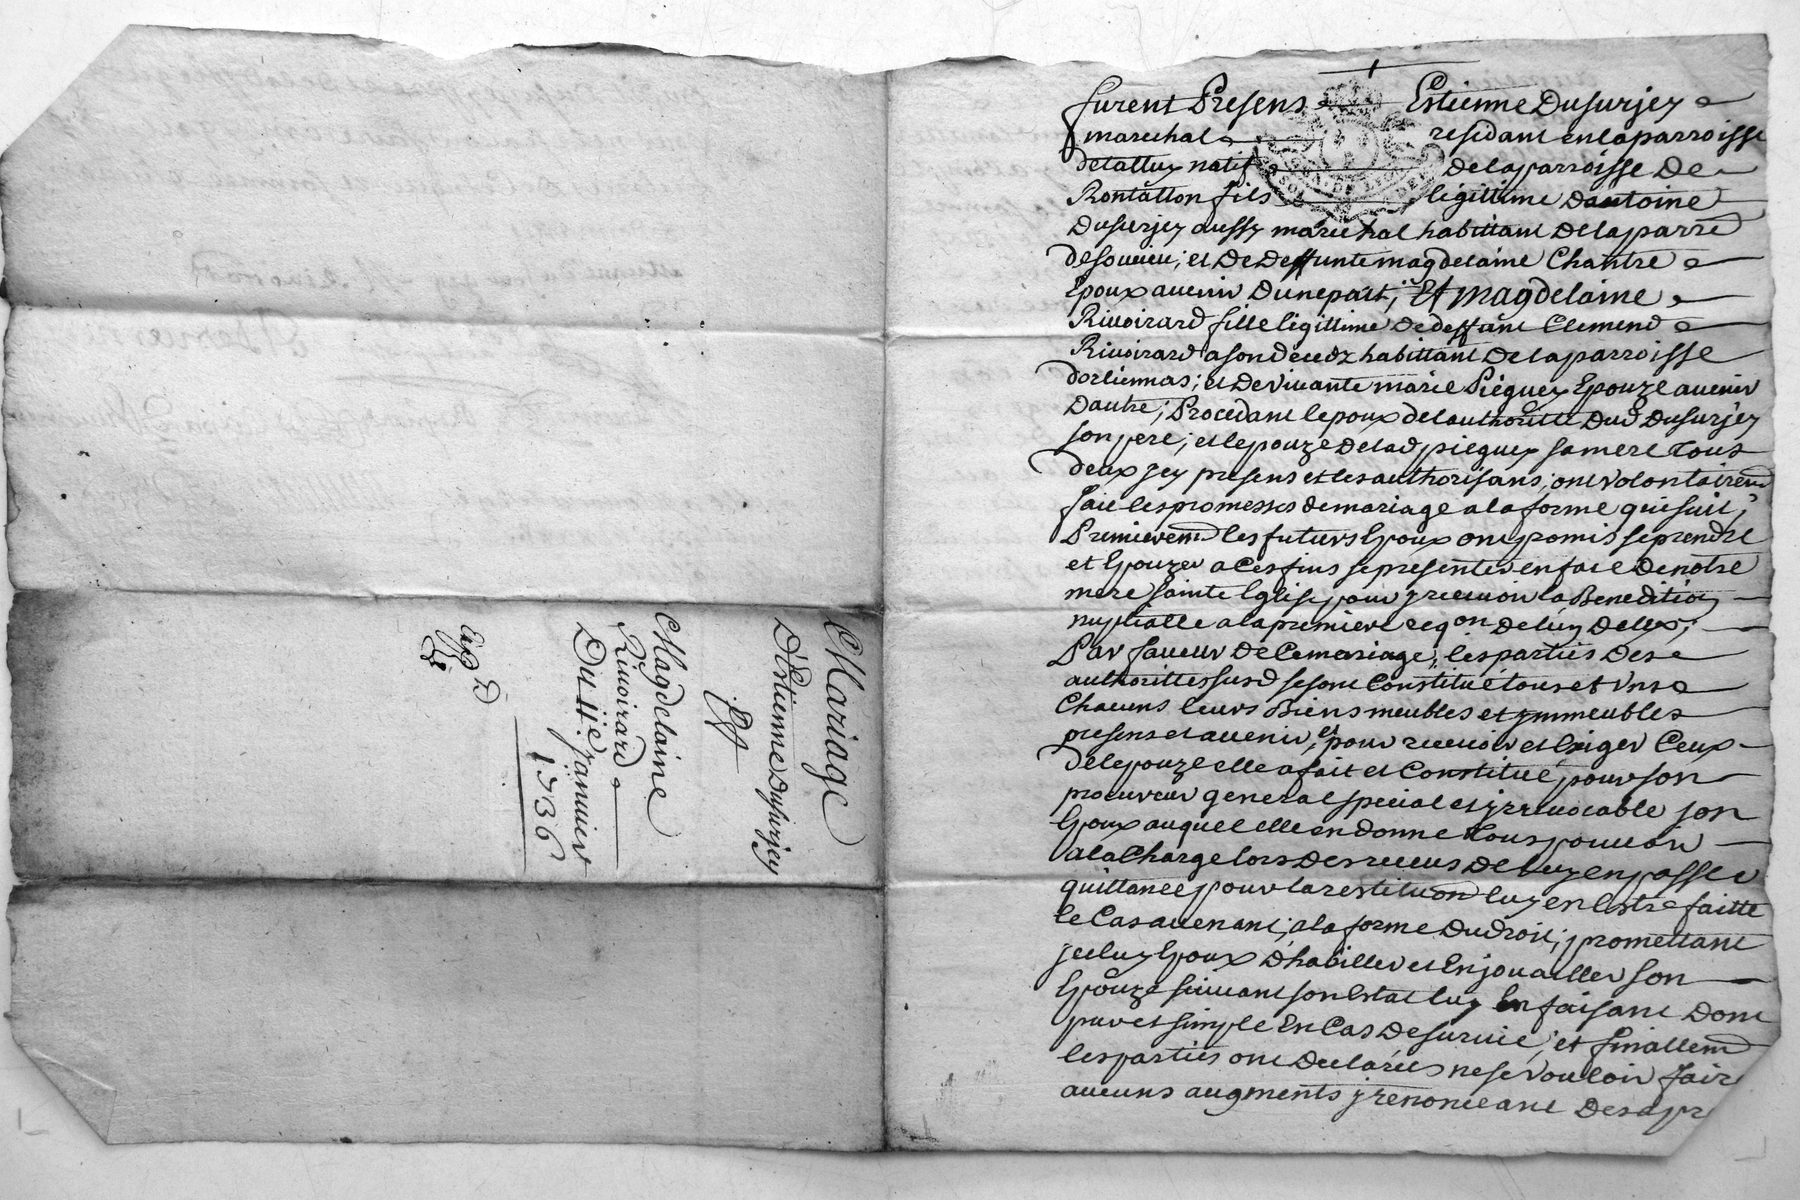 furent Presens Estienne Dusurjey
marechal residant en la parroisse
de talluy natif de la parroisse De
Rontallon fils legittime dantoine
Dusurjey aussy marechal habittant De la parre
de soucieu; et De Deffunte magdelaine Chantre
Epoux avenir Dune part; Et magdelaine
Rivoirard fille legittime De deffunt Clemend
Rivoirard a son decedz habittant De la parroisse
dorliennas; et De vivante marie Pieguey Epouze avenir
Dautre; Procedant lepoux de lauthoritté Dud Dusurjey
son pere; et lepouze De lad pieguey sa mere tous
deux jcy presens et les authorisans; ont volontairemt
fait les promesses de mariage a la forme qui suit;
Premieremt les futurs Epoux ont promis se prendre
et Epouzer a Ces fins se presenter en face De notre
mere sainte Eglise pour y recevoir la Benedition
nuptialle a la premiere reqon De luy Delles;
Par faveur de Ce mariage; les parties Des
authorittes susd se sont Constitué tous et Uns
Chacuns leurs Biens meubles et ymmeubles
presens et avenir, et pour recevoir et Exiger Ceux
de lepouze elle a fait et Constitué pour son
procureur general special et jrrevocable son
Epoux auquel elle en donne tous pouvoir
a la Charge lors Des receus De luy en passer
quittance pour la restitution luy en Estre faitte
le Cas avenant; a la forme Du droit; promettant
jceluy Epoux Dhabiller et Enjouailler son
Epouze suivant son Estat luy En faisant Dont
pur et simple En Cas De survie; et finallemt
les parties ont Declarées ne se vouloir fair
aucuns augments y renonceant Des apr
Mariage
D'Estienne Dusurjey
Et
Magdelaine
Rivoirard
Du 11e. Janvier
1736
Exp D